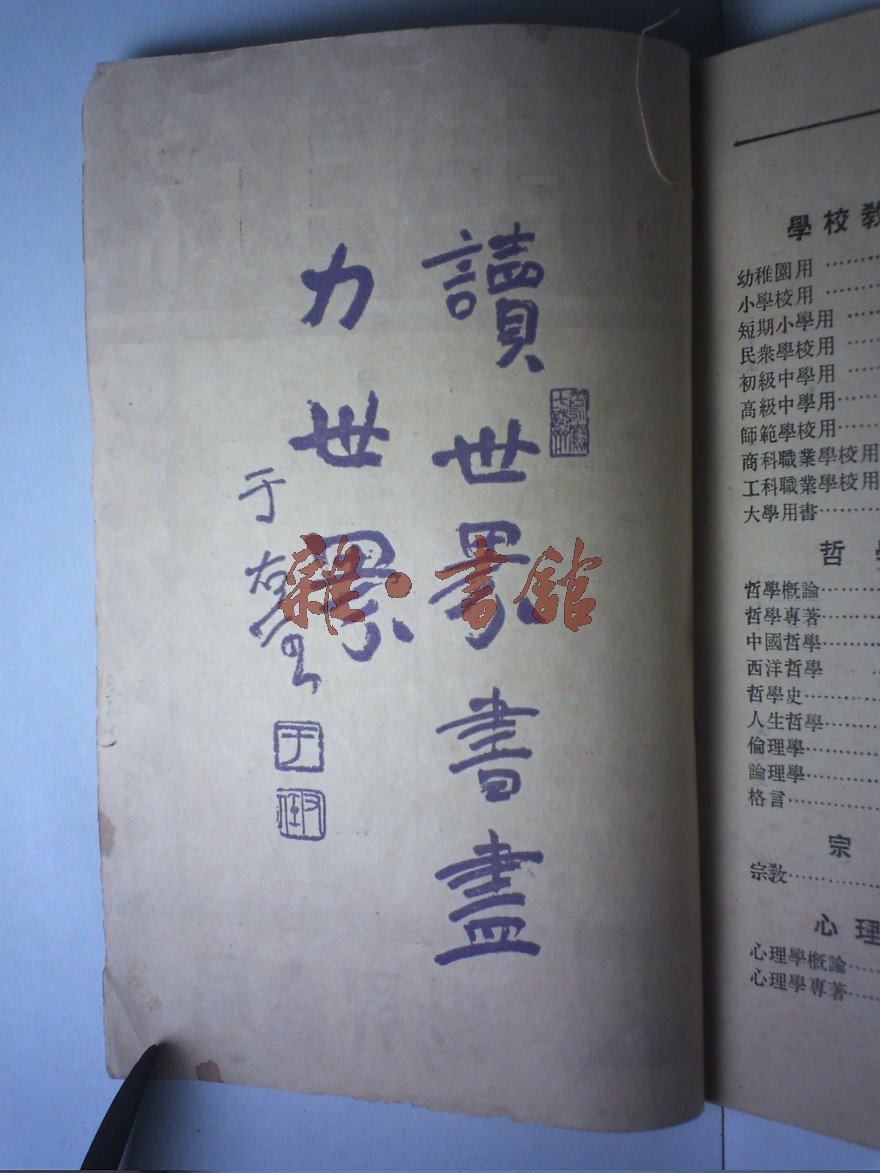 讀世界書盡
力世界
于右任
于
雜·書館
學校教
幼稚園用…………
小學校用…………
短期小學用………
民衆學校用………
初級中學用………
高級中學用………
師範學校用………
商科職業學校用
工科職業學校用
大學用書…………
哲學
哲學概論…………
哲學專著…………
中國哲學…………
西洋哲學
哲學史……………
人生哲學…………
倫理學……………
論理學……………
格言………………
宗
宗教………………
心理
心理學概論………
心理學專著………